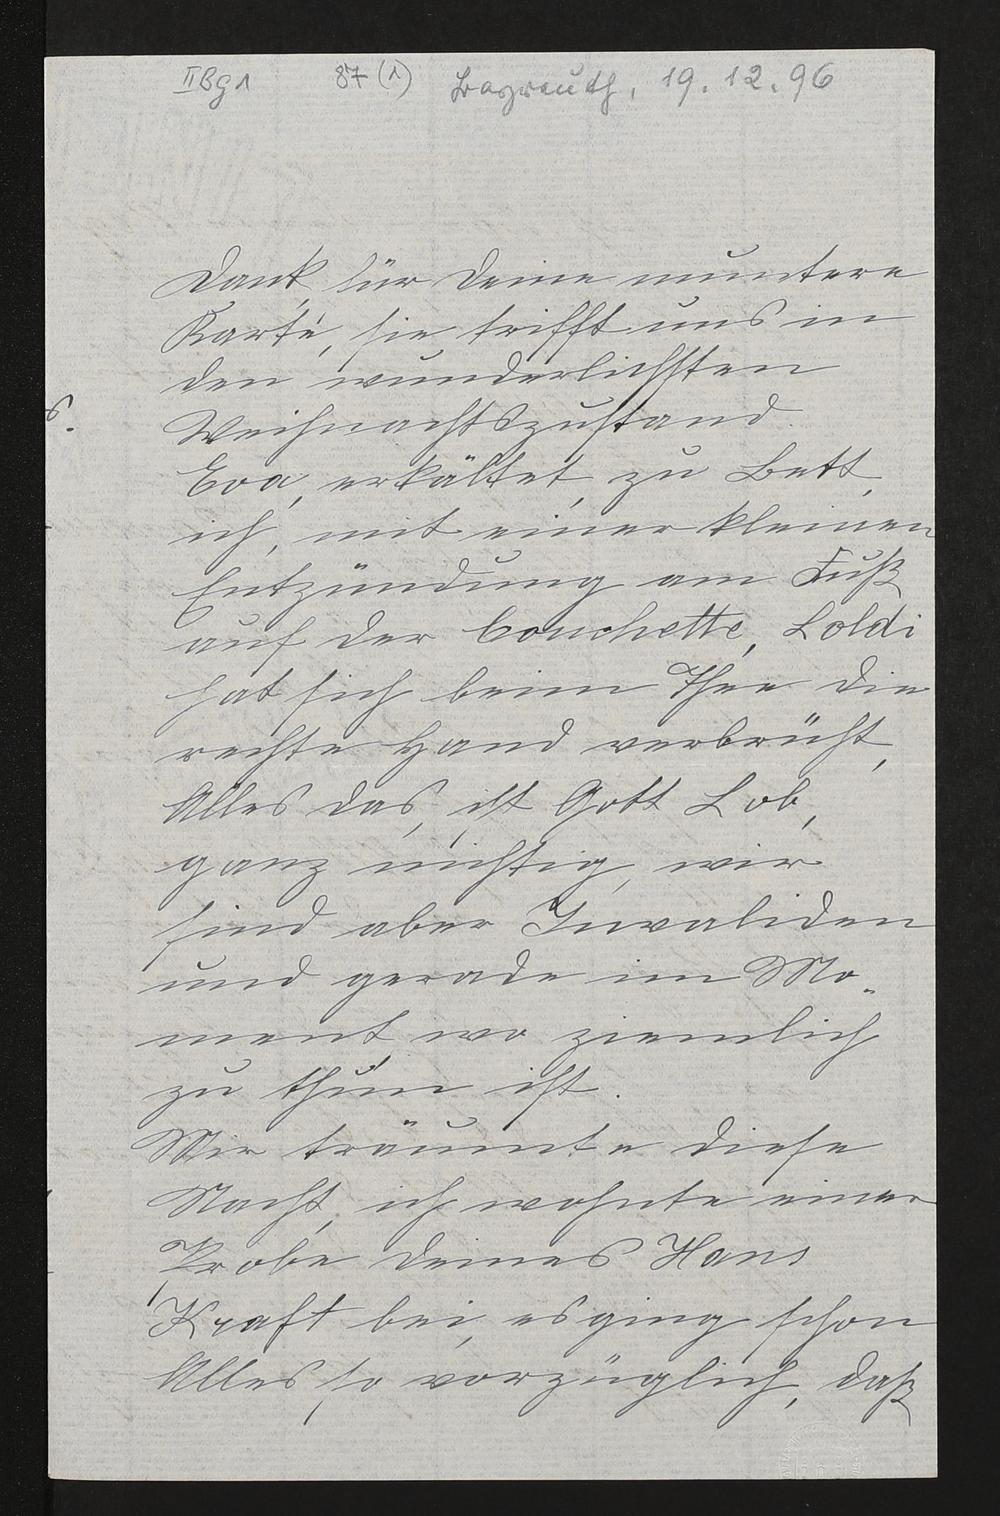 II Bg 1 87 (1) Bayreuth, 19.12.96
Dank für Deine muntere
Karte, sie trifft uns in
den wunderlichsten
Weihnachtszustand.
Eva, erkältet, zu Bett,
ich, mit einer kleinen
Entzündung am Fuß
auf der Couchette, Loldi
hat sich beim Thee die
rechte Hand verbrüht,
Alles das, ist Gott Lob,
ganz nichtig, wir
sind aber Invaliden
und gerade im Mo-
ment wo ziemlich
zu thun ist.
Mir träumte diese
Nacht, ich wohnte einer
Probe deines Hans
Kraft bei, es ging schon
Alles so vorzüglich, daß